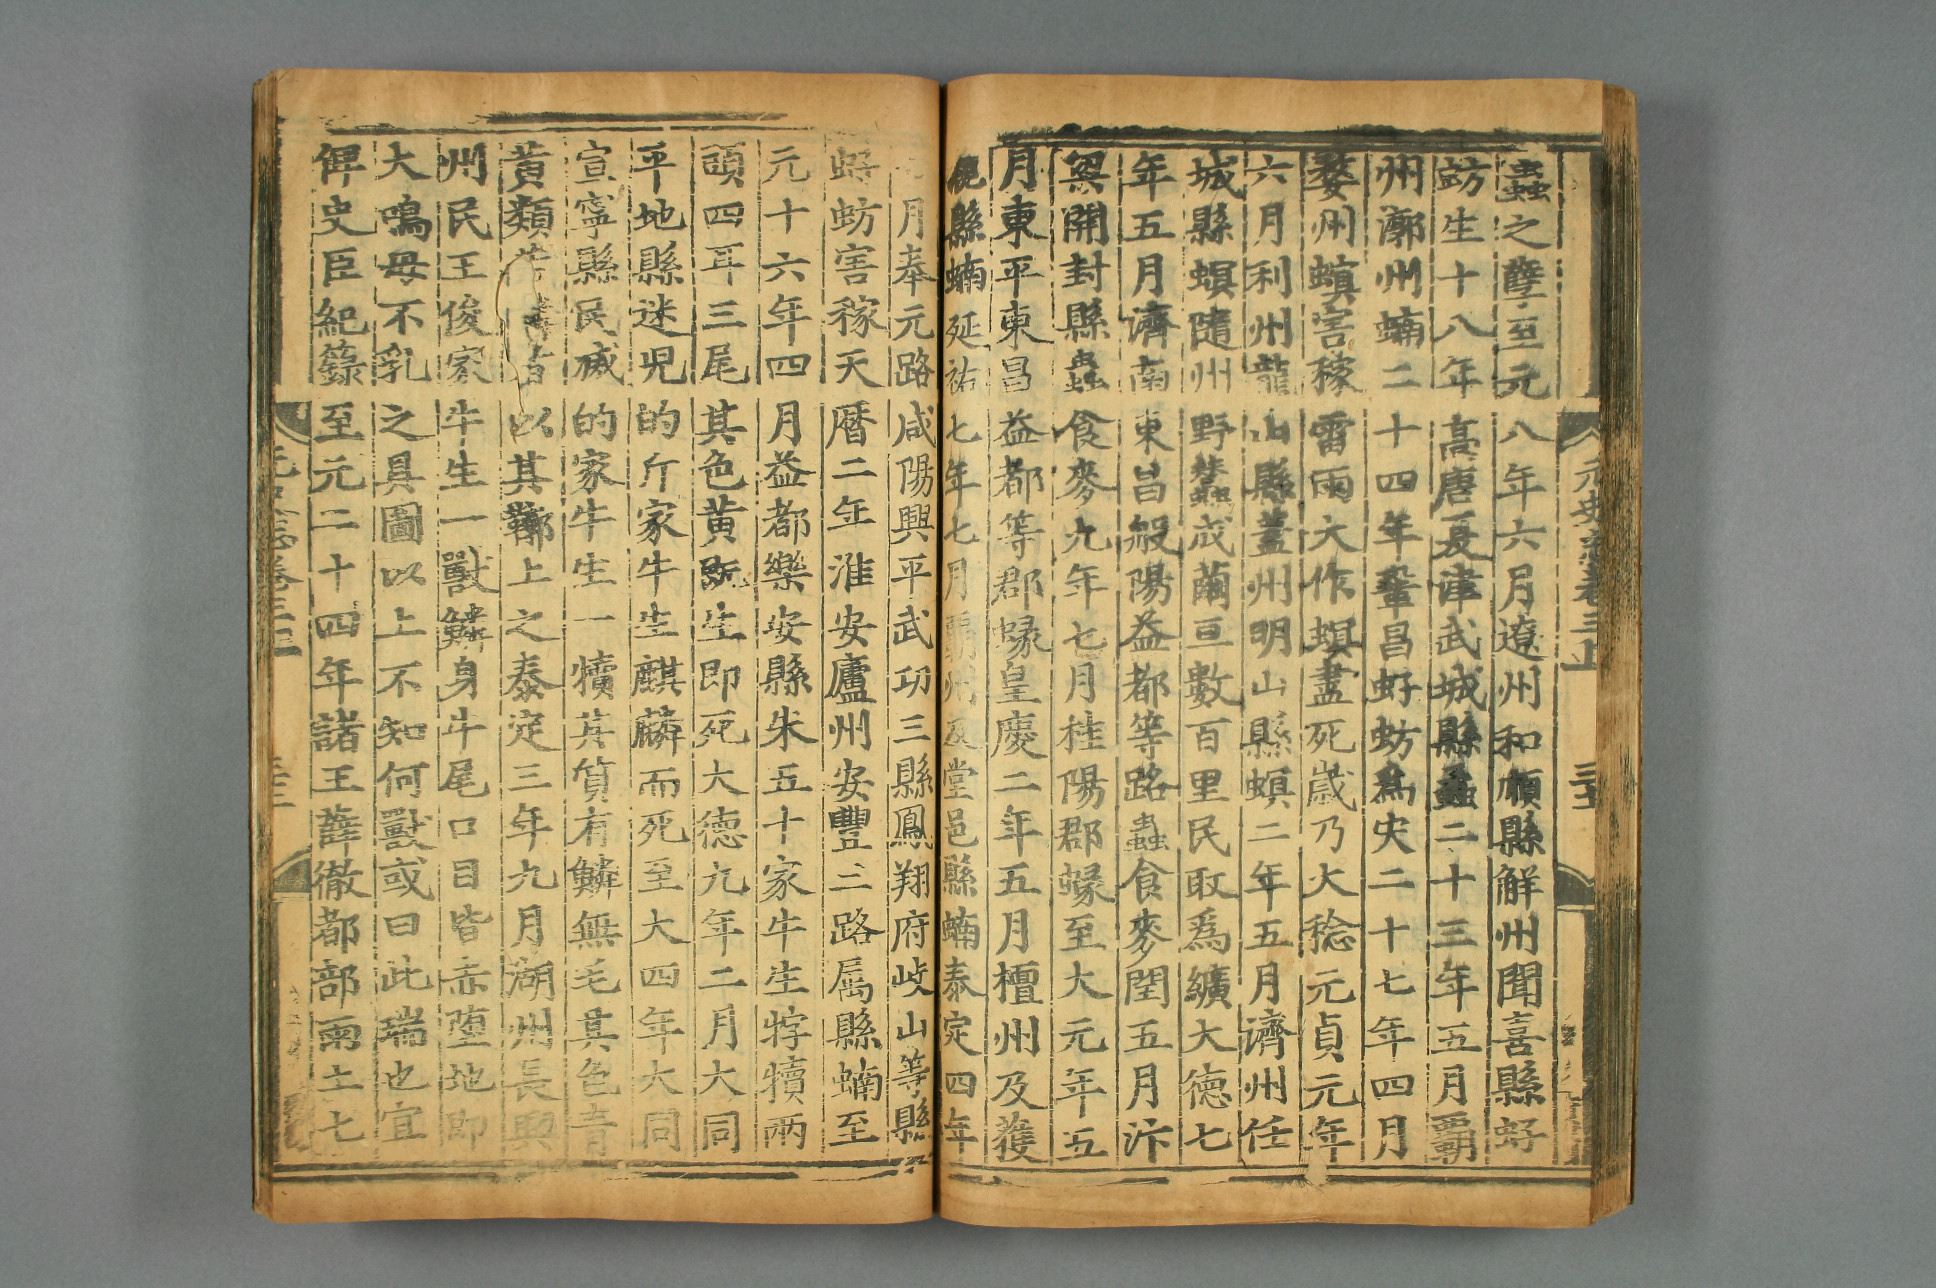 元史志卷三上
三十五
蟲之孽至元八年六月遼州和順縣解州聞喜縣虸
蚄生十八年高唐夏津武城縣蟊二十三年五月霸
州漷州蝻二十四年鞏昌虸蚄為灾二十七年四月
婺州螟害稼雷雨大作螟盡死歲乃大稔元貞元年
六月利州龍山縣蓋州明山縣螟二年五月濟州任
城縣螟隨州野蠶成繭亘數百里民取爲纊大德七
年五月濟南東昌般陽益都等路蟲食麥閏五月汴
梁開封縣蟲食麥九年七月桂陽郡蝝至大元年五
月東平東昌益都等郡蝝皇慶二年五月檀州及獲
縣蝻延祐七年七月霸州及堂邑縣蝻泰定四年
月奉元路咸陽興平武功三縣鳳翔府岐山等縣
虸蚄害稼天曆二年淮安廬州安豐三路屬縣蝻至
元十六年四月益都樂安縣朱五十家牛生牸犢兩
頭四耳三尾其色黄既生即死大德九年二月大同
平地縣迷兒的斤家牛生麒麟而死至大四年大同
宣寧縣民滅的家牛生一犢其質有鱗無毛其色青
黄類若以其鞹上之泰定三年九月湖州長興
州民王俊家牛生一獸鱗身牛尾口目皆赤墮地即
大鳴母不乳之具圖以上不知何獸或曰此瑞也宜
俾史臣紀錄至元二十四年諸王薛徹都部雨土七